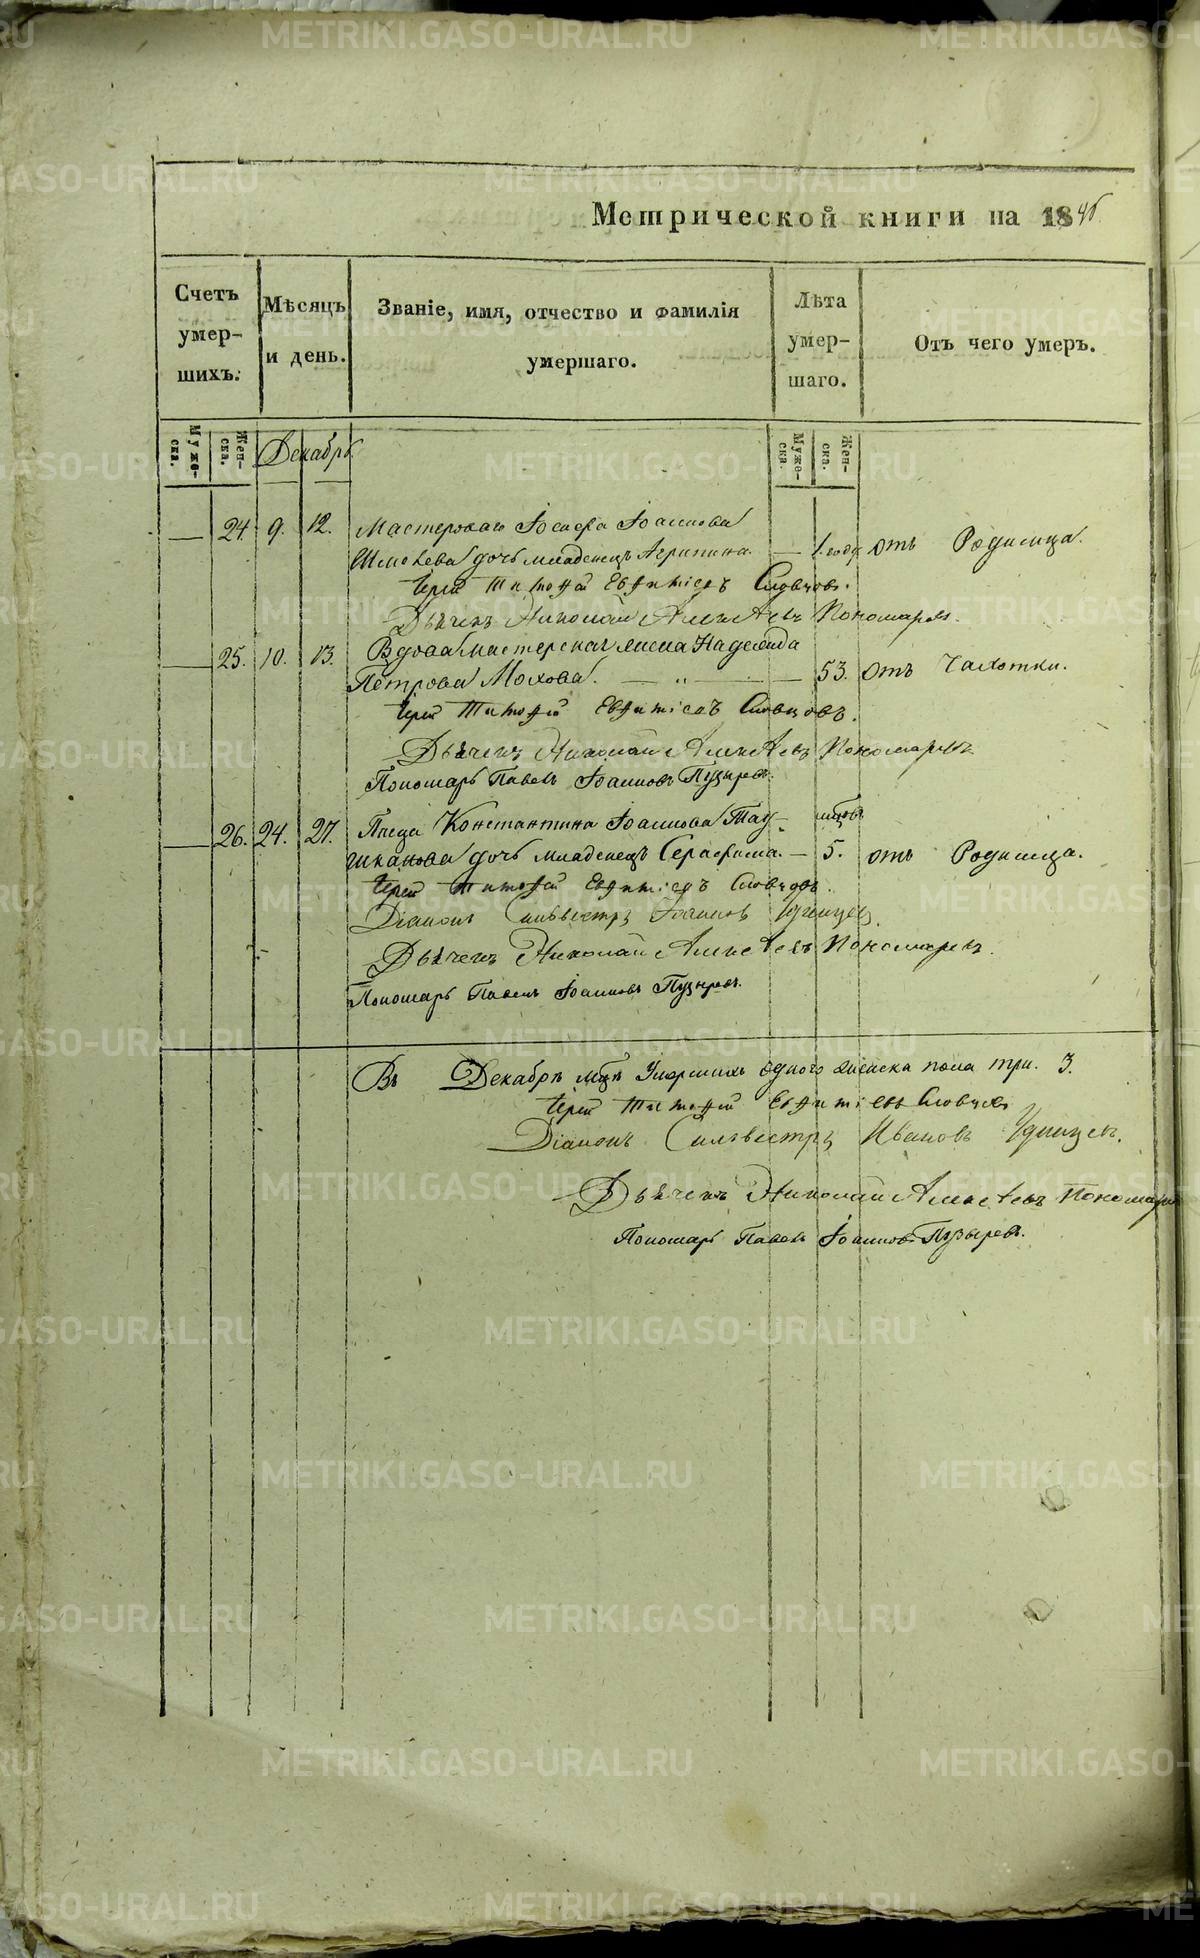 METRIKI.GASO-URAL.RU
Метрической книги на 1846
Счетъ умер-шихъ.
Мѣсяцъ и день.
Званіе, имя, отчество и фамилія умершаго.
Лѣта умер-шаго.
Отъ чего умеръ.
Муже-ска.
Жен-ска.
Декабрь
Муже-ска.
Жен-ска.
24. 9. 12. Мастероваго Іосифа Іоаннова
дочь младенецъ Агрипина. — 1. года отъ Родимца.
Іерей Тимофей Евфиміевъ Словцовъ.
Дьячекъ Николай Алексѣевъ Пономаревъ.
25. 10. 13. Вдова мастерская жена Надежда
Петрова Мохова. — „ — 53. отъ Чахотки.
Іерей Тимофей Евфиміевъ Словцовъ.
Дьячекъ Николай Алексѣевъ Пономаревъ
Пономарь Павелъ Іоанновъ Пузыревъ.
26. 24. 27. Писца Константина Іоаннова
дочь младенецъ Серафима. — 5. отъ Родимца.
Іерей Тимофей Евфиміевъ Словцовъ.
Діаконъ Сильвестръ Іоанновъ Удинцев.
Дьячекъ Николай Алексѣевъ Пономаревъ.
Пономарь Павелъ Іоанновъ Пузыревъ.
Въ Декабрѣ мцѣ Умершихъ одного женска пола три. 3.
Іерей Тимофей Евфиміевъ Словцовъ
Діаконъ Сильвестръ Ивановъ Удинцев.
Дьячекъ Николай Алексѣевъ Пономарев
Пономарь Павелъ Іоанновъ Пузыревъ.